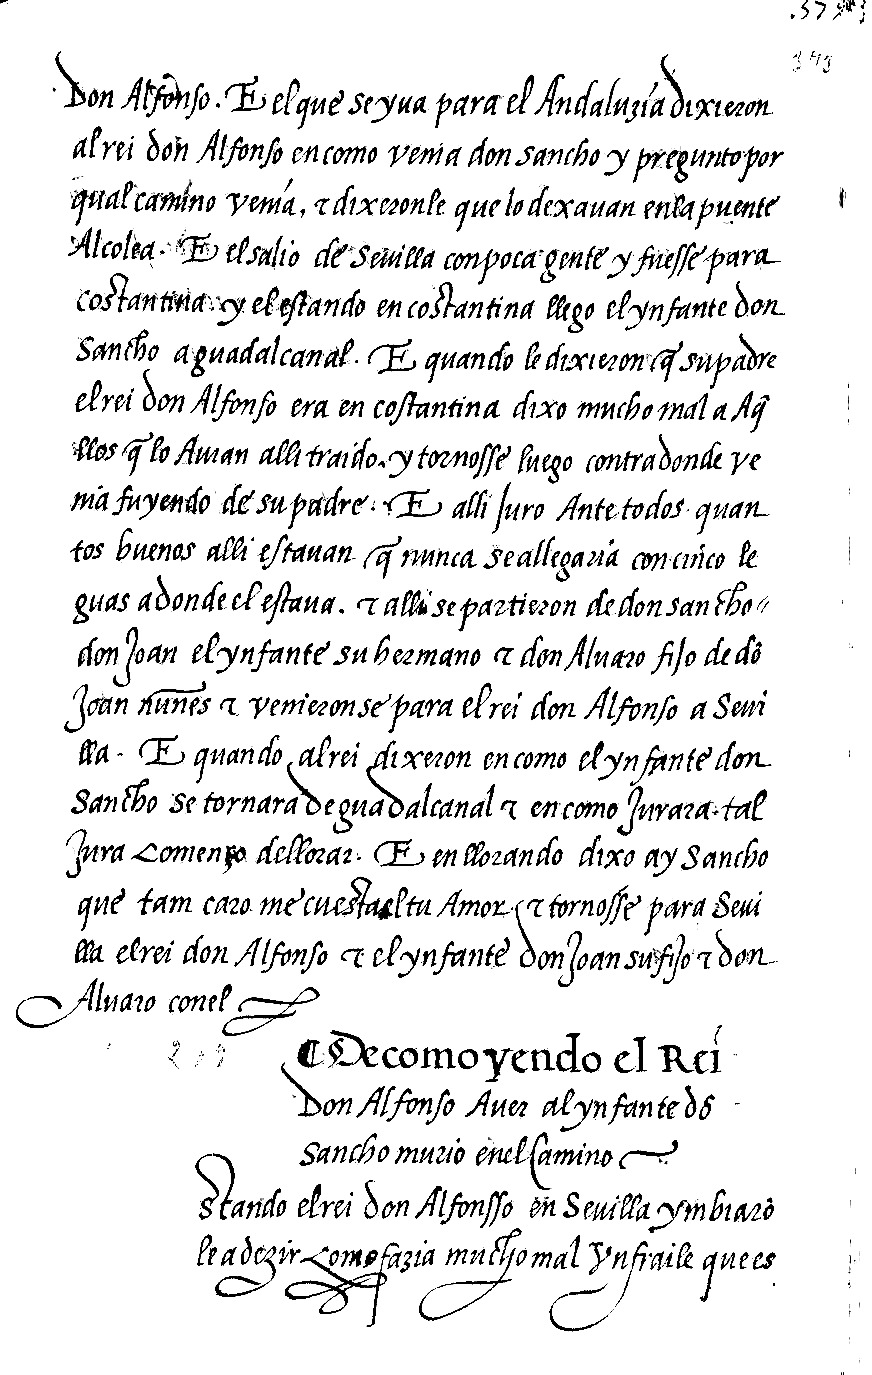 Don Alfonso. E el que se yua para el Andaluzía dixieron
al rei don Alfonso en como venia don sancho y pregunto por
qual camino venía, τ dixeronle que lo dexauan en la puente
Alcolea. E el salio de Seuilla con poca gente y fuesse para
costantina y el estando en costantina llego el ynfante don
Sancho a guadalcanal. E quando le dixieron q̃ su padre
el rei don Alfonso era en costantina dixo mucho mal a Aq̃
llos q̃ lo Auian alli traido. y tornosse luego contra donde ve
nia fuyendo de su padre. E alli Juro Ante todos quan
tos buenos alli estauan q̃ nunca se allegaría con cinco le
guas a donde el estaua. τ alli se partieron de don sancho
don Joan el ynfante su hermano τ don Aluaro fijo de dõ
Joan nunes τ venieronse para el rei don Alfonso a Seui
lla. E quando al rei dixeron en como el ynfante don
Sancho se tornara de guadalcanal τ en como Jurara tal
Jura Començo de llorar. E en llorando dixo ay Sancho
que tam caro me cuesta el tu Amor τ tornosse para Seui
lla el rei don Alfonso τ el ynfante don Joan su fijo τ don
Aluaro con el
¶ De como yendo el Rei
Don Alfonso Auer al ynfante dõ
Sancho murio en el Camino
Stando el rei don Alfonsso en Seuilla ymbiarõ
le a dezir Como fazia mucho mal Yn fraile que es